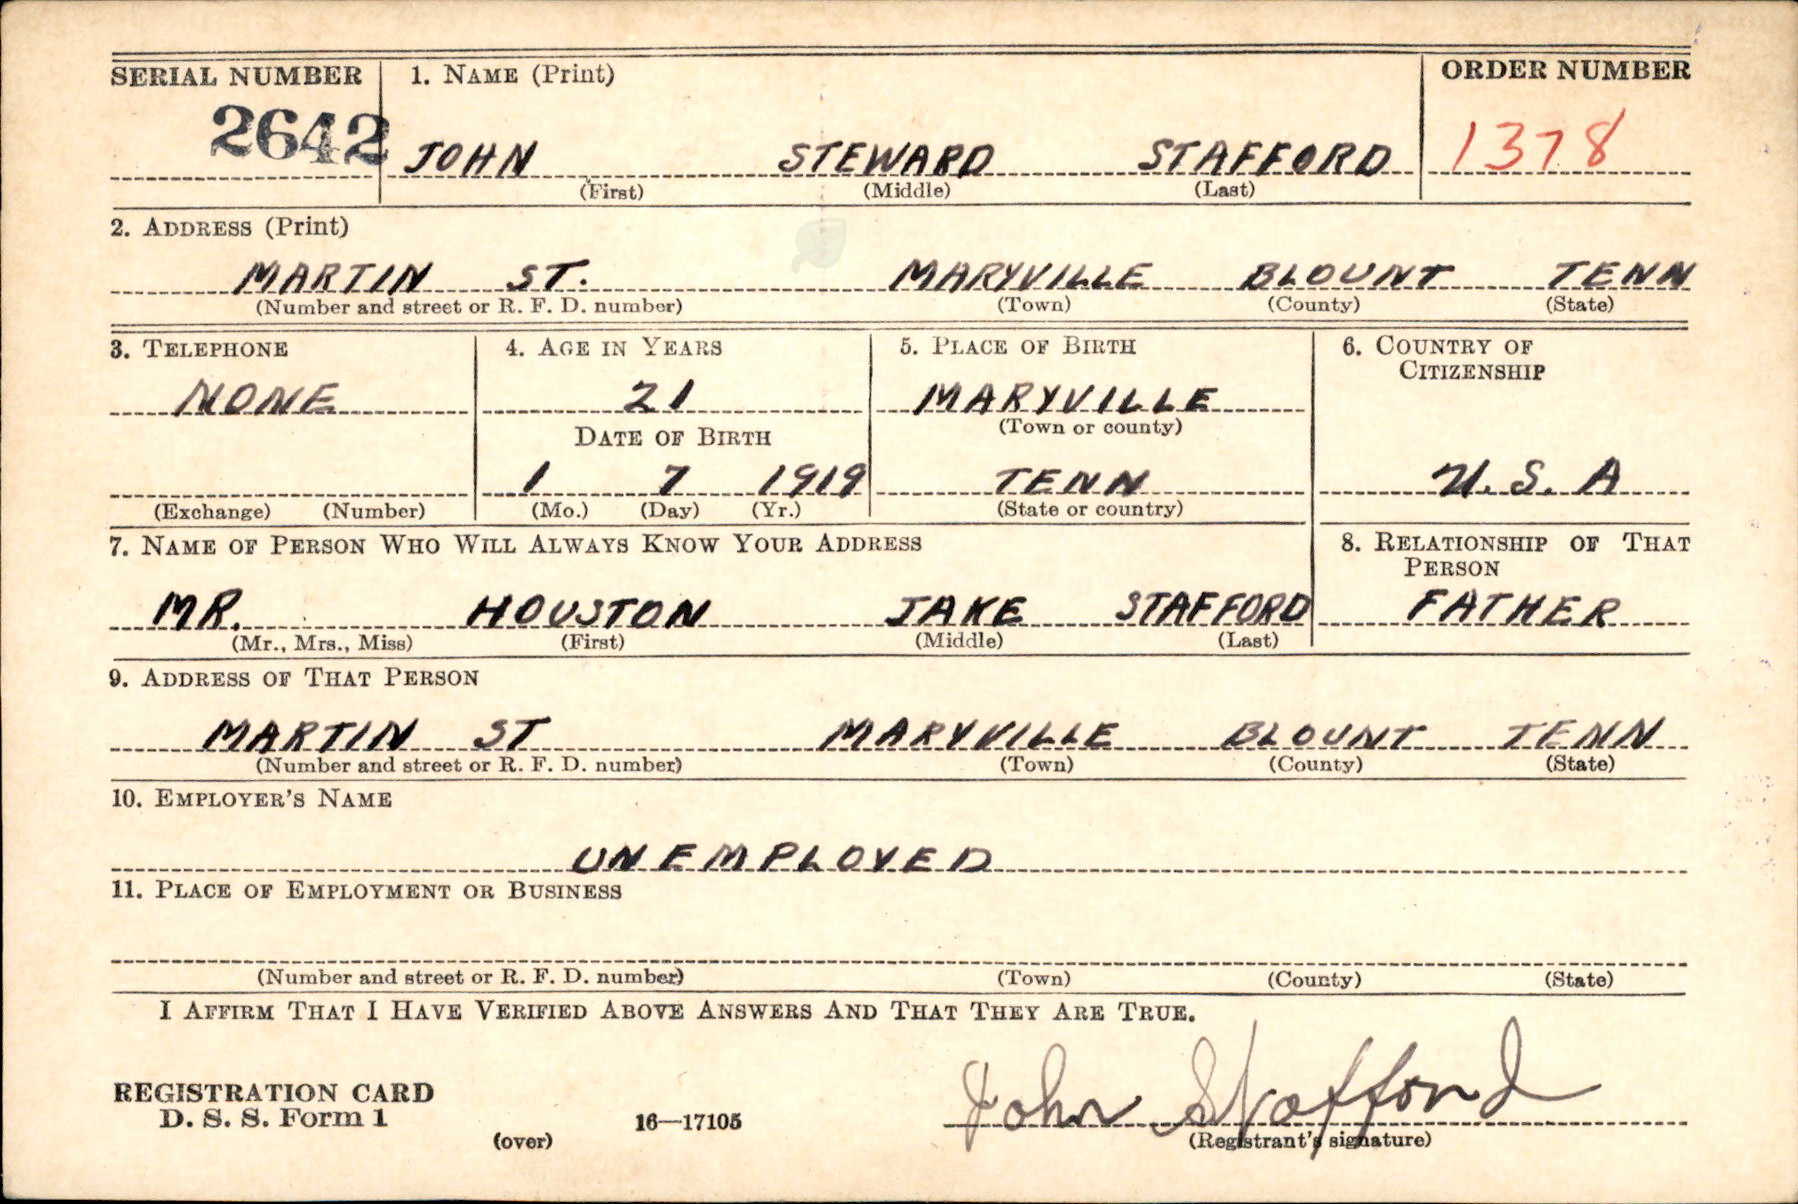 SERIAL NUMBER 1. NAME (Print) ORDER NUMBER
2642 JOHN STEWARD STAFFORD 1378
(First) (Middle) (Last)
2. ADDRESS (Print)
MARTIN ST. MARYVILLE BLOUNT TENN
(Number and street or R. F. D. number) (Town) (County) (State)
3. TELEPHONE 4. AGE IN YEARS 5. PLACE OF BIRTH 6. COUNTRY OF
CITIZENSHIP
NONE 21 MARYVILLE
(Town or county)
DATE OF BIRTH
1 7 1919 TENN U.S.A
(Exchange) (Number) (Mo.) (Day) (Yr.) (State or country)
7. NAME OF PERSON WHO WILL ALWAYS KNOW YOUR ADDRESS 8. RELATIONSHIP OF THAT
PERSON
MR. HOUSTON JAKE STAFFORD FATHER
(Mr., Mrs., Miss) (First) (Middle) (Last)
9. ADDRESS OF THAT PERSON
MARTIN ST MARYVILLE BLOUNT TENN
(Number and street or R. F. D. number) (Town) (County) (State)
10. EMPLOYER'S NAME
UNEMPLOYED
11. PLACE OF EMPLOYMENT OR BUSINESS
(Number and street or R. F. D. number) (Town) (County) (State)
I AFFIRM THAT I HAVE VERIFIED ABOVE ANSWERS AND THAT THEY ARE TRUE.
REGISTRATION CARD
D. S. S. Form 1 16—17105 John Stafford
(over) (Registrant's signature)